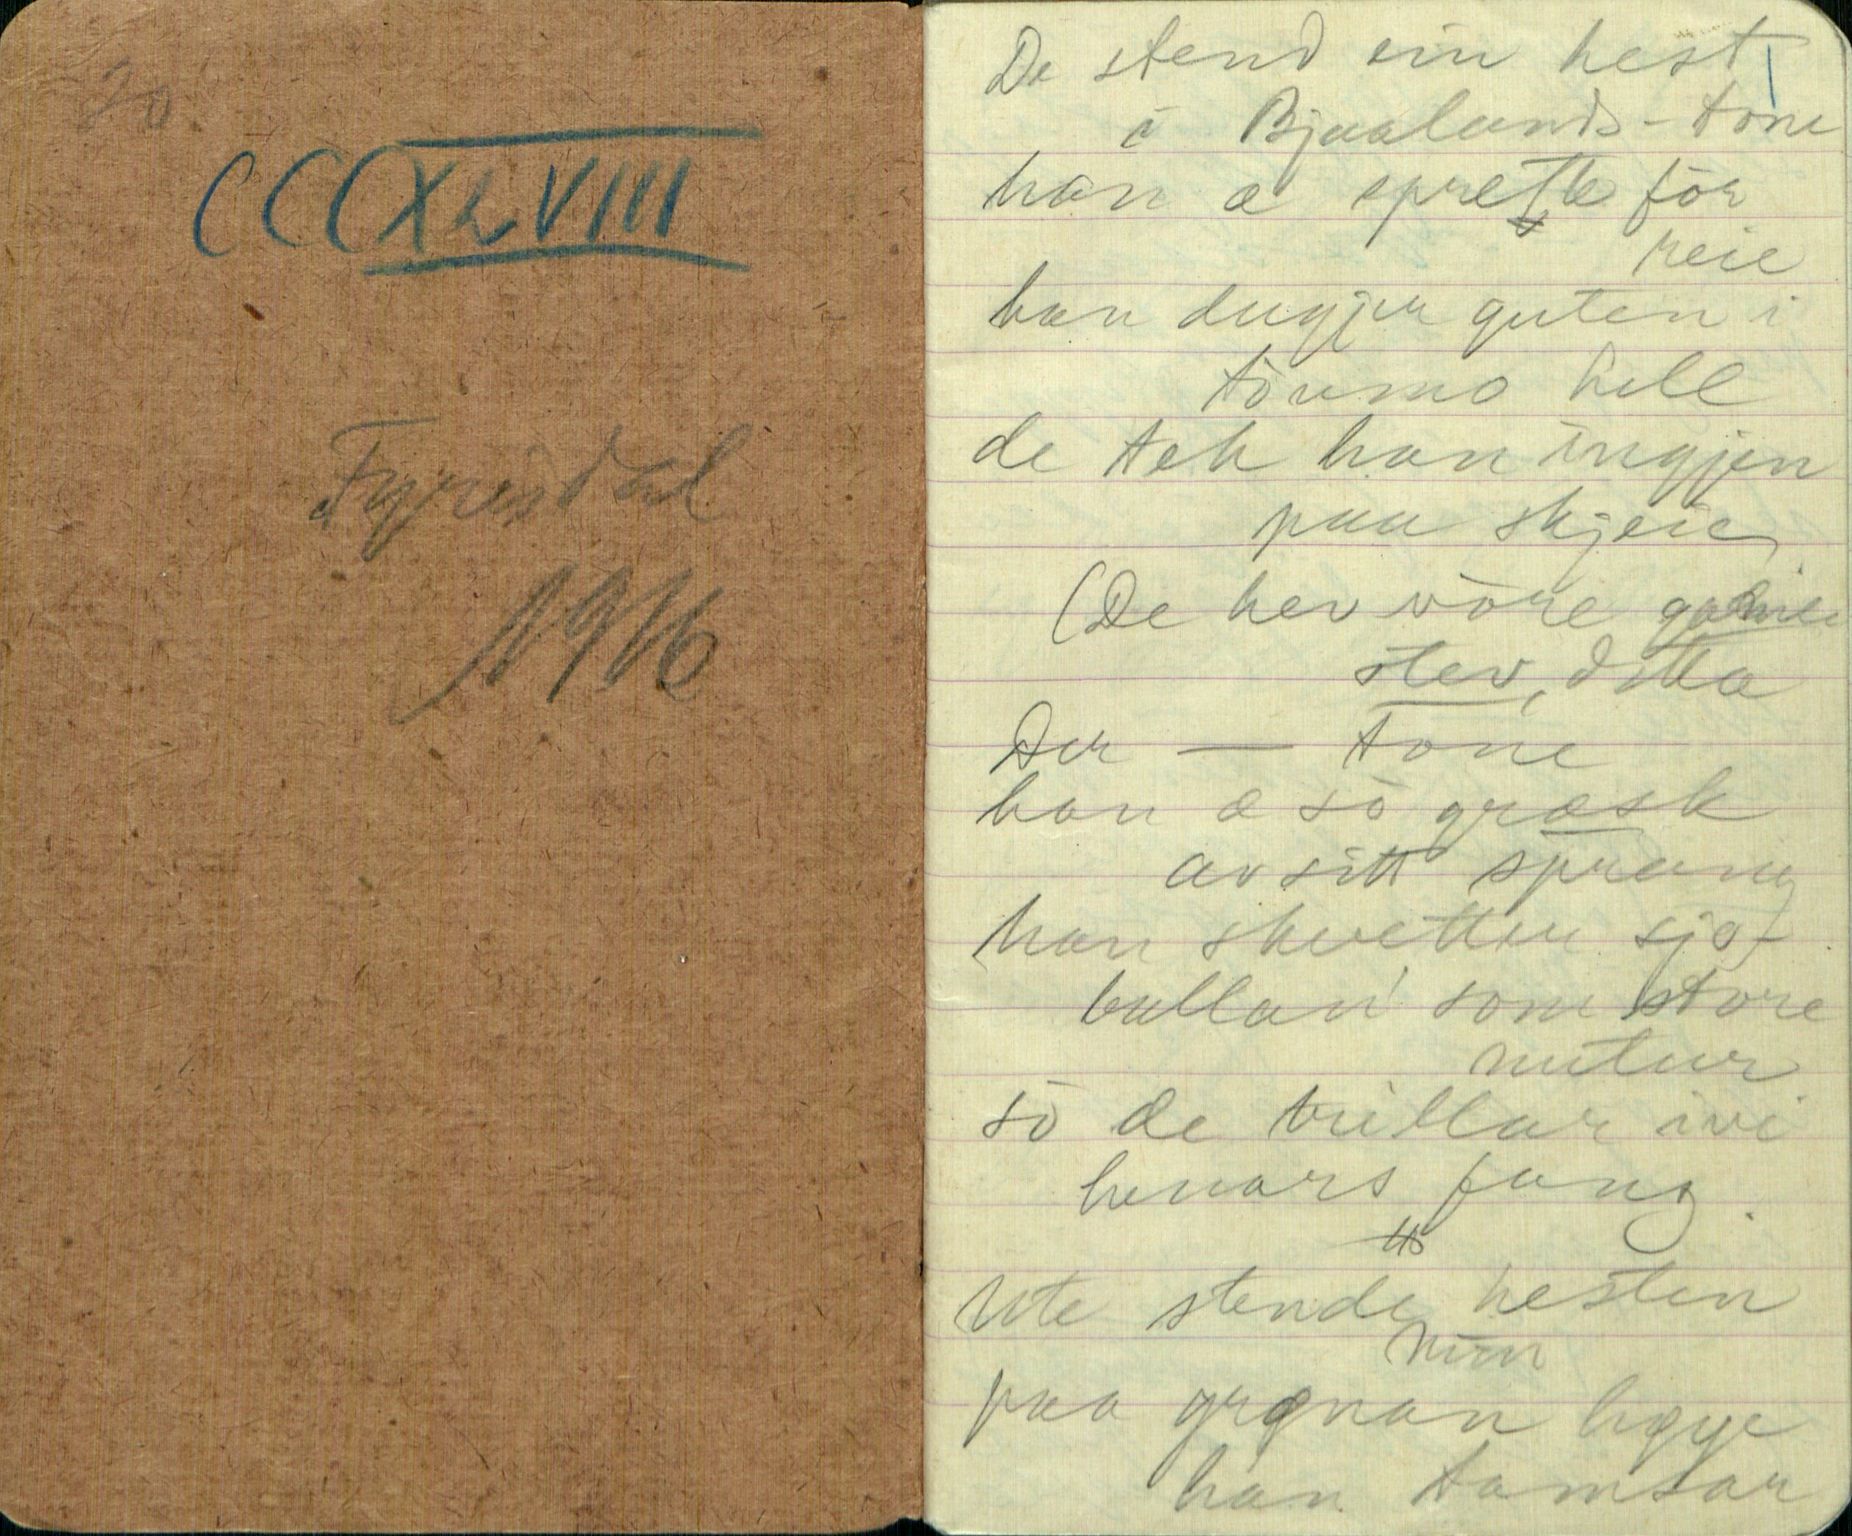 20
CCCXLVIII
Fyresdal
1916
De stend ein hest
i Bjaalands-tòne
han æ sprette fòr
reie
han dugjer guten i
tòumo hell
de tek han ingjen
paa skjeie
(De hev vòre gamle
stev, detta
Der — tòne
han æ sò græsk
av sitt sprang
han skvetter sjo-
bullan' som store
nutur
sò de trillar ivi
hennars fang.
Ute stende hesten
min
paa grønan høge
han tamsar